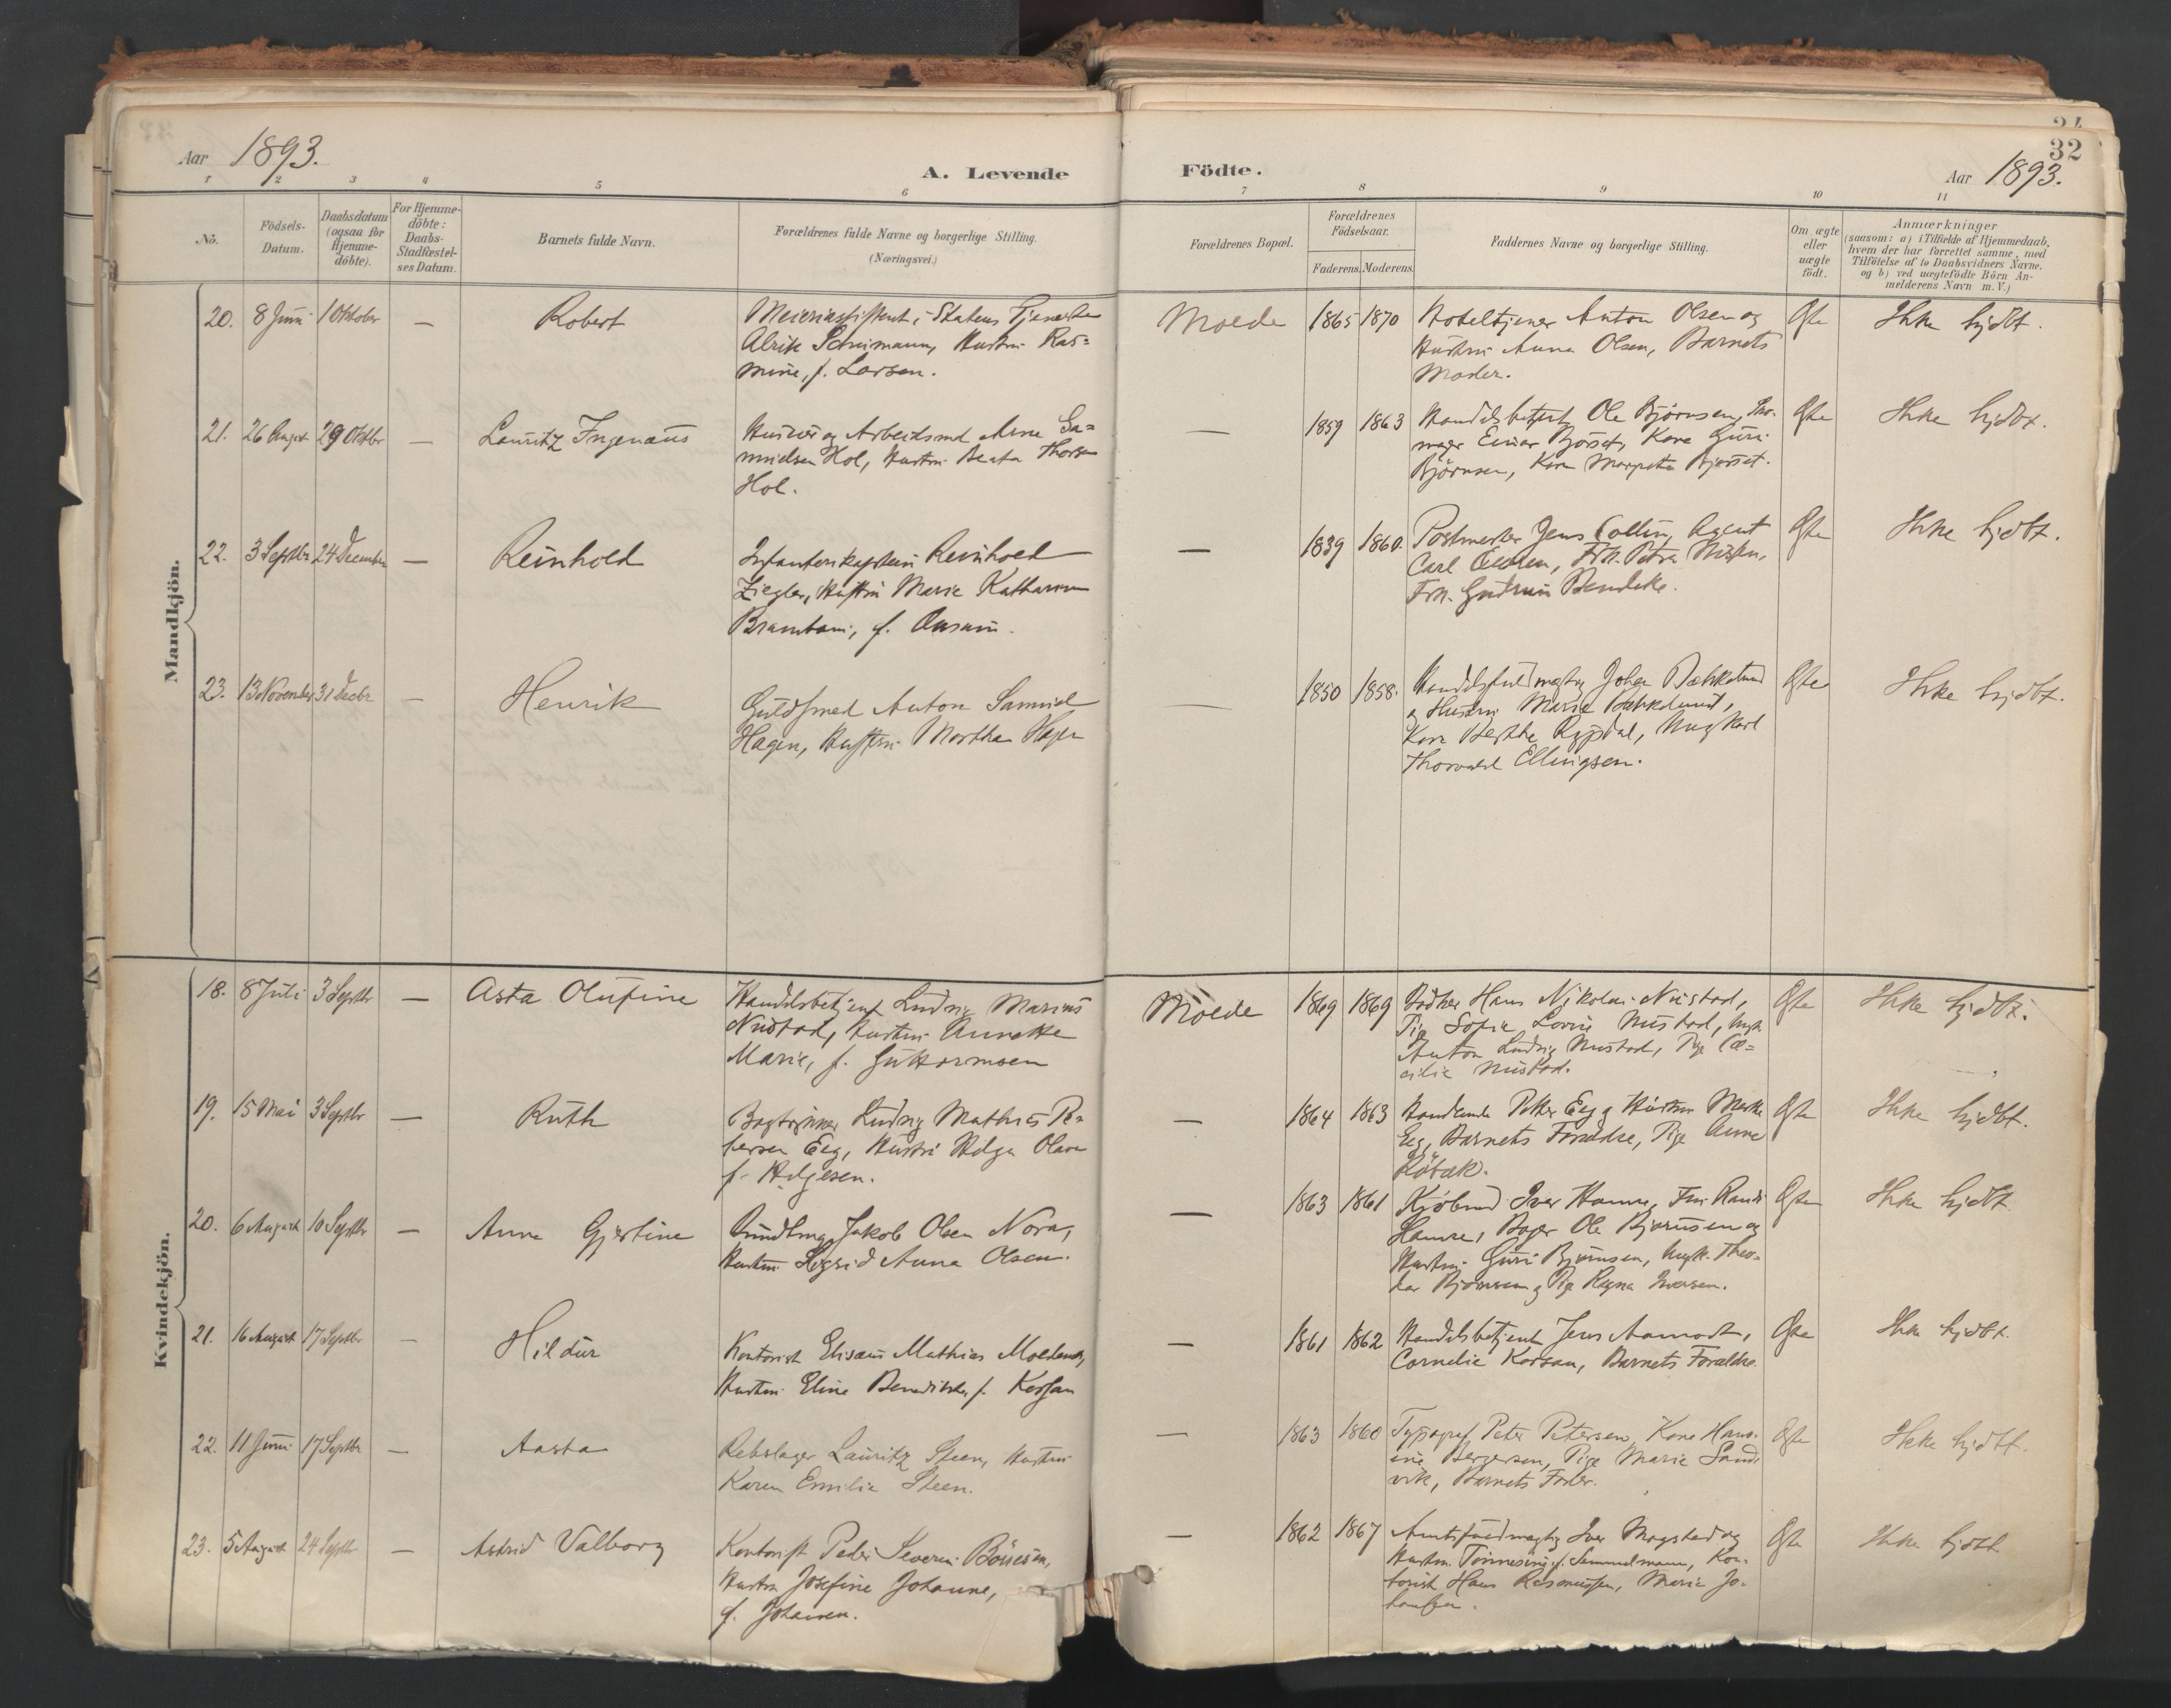 Aar 1893.
A. Levende
Födte.
32
Aar 1893.
1 2 3 4 5 6 7 8 9 10 11
No.
Födsels-
Datum.
Daabsdatum
(ogsaa for
Hjemme-
döbte).
For Hjemme-
döbte:
Daabs-
Stadfæstel-
ses Datum.
Barnets fulde Navn.
Forældrenes fulde Navne og borgerlige Stilling.
(Næringsvei.)
Forældrenes Bopæl.
Forældrenes
Födselsaar.
Faderens. Moderens.
Faddernes Navne og borgerlige Stilling.
Om ægte
eller
uægte
födt.
Anmærkninger
(saasom: a) i Tilfælde af Hjemmedaab,
hvem der har forrettet samme, med
Tilföielse af to Daabsvidners Navne.
og b) ved uægtefödte Börn An-
melderens Navn m.V.)
Mandkjön.
20. 8 Juni 1 Oktober — Robert
Meieriassistent i Statens Tjeneste
Alrik Schumann, Hustru Ras=
mine, f. Larsen.
Molde 1865 1870
Hoteltjener Anton Olsen og
Hustru Anna Olsen, Barnets
Moder.
Ægte Ikke hjdbt.
21. 26 August 29 Oktbr — Lauritz Ingenæus
Huseier og Arbeidsmd Arne Sa=
muelsen Hol, Hustru Beata Thorsen
Hol.
— 1859 1863
Handelsbetjent Ole Bjørnsen, Sko-
mager Einar Bjørset, Kone Guri
Bjørnsen, Kone Margrethe Bjørset.
Ægte Ikke hjdbt.
22. 3 Septbr 24 December — Reinhold
Infanterikaptein Reinhold
Ziegler, Hustru Marie Katharine
f. Ousum.
— 1839 1860.
Postmester Jens Collin, Agent
Carl Frk. Petra
Frk. Gudrun Bendeke.
Ægte Ikke hjdbt.
23. 13 November 31 Decbr — Henrik
Guldsmed Anton Samuel
Hagen, Hustru Martha Hagen
— 1850 1858.
Handelsfuldmægtig Johan Bækkelund
og Hustru Marie Bækkelund,
Kone Berthe Rypdal, Ungkarl
Thorvald Ellingsen.
Ægte Ikke hjdbt.
Kvindekjön.
18. 8 Juli 3 Septbr — Asta Olufine
Handelsbetjent Ludvig Marius
Nustad, Hustru Annette
Marie, f. Guttormsen
Molde 1869 1869
Bødker Hans Nikolai Nustad,
Pige Sofie Lovise Nustad, Ungk.
Anton Ludvig Nustad, Pige Cæ=
cilie Nustad.
Ægte Ikke hjdbt.
19. 15 Mai 3 Septbr — Ruth
Ludvig Mathias Pe=
tersen Eeg, Hustru Helga Olava
f. Helgesen.
— 1864 1863
Petter Eeg og Hustru Marthe
Eeg, Barnets Forældre, Pige Anna
Røbæk.
Ægte Ikke hjdbt.
20. 6 August 10 Septbr — Anna Gjertine
Jakob Olsen Nora,
Hustru Sigrid Anna Olsen.
— 1863 1861
Kjøbmd Iver Hamre, Fru Randi
Hamre, Bager Ole Bjørnsen og
Hustru Guri Bjørnsen, Ungk. Theo-
dor Bjørnsen og Pige Ragna Iversen.
Ægte Ikke hjdbt.
21. 16 August 17 Septbr — Hildur
Kontorist Elisæus Mathias
Hustru Eline Benedikte, f. Korsan
— 1861 1862
Handelsbetjent Jens Aamodt,
Cornelie Korsan, Barnets Forældre.
Ægte Ikke hjdbt.
22. 11 Juni 17 Septbr — Aasta
Rebslager Lauritz Steen, Hustru
Karen Emilie Steen.
— 1863 1860
Typograf Peter Petersen, Kone Hans-
ine Bergersen, Pige Marie Sand-
vik, Barnets Fader.
Ægte Ikke hjdbt.
23. 5 August 24 Septbr — Astrid Valborg
Kontorist Peder Severin
Hustru Josefine Johanne,
f. Johansen.
— 1862 1867
Amtsfuldmægtig Iver Mogstad og
Hustru f. Sammelmann, Kon-
torist Hans Rasmussen, Marie Jo-
hansen.
Ægte Ikke hjdbt.